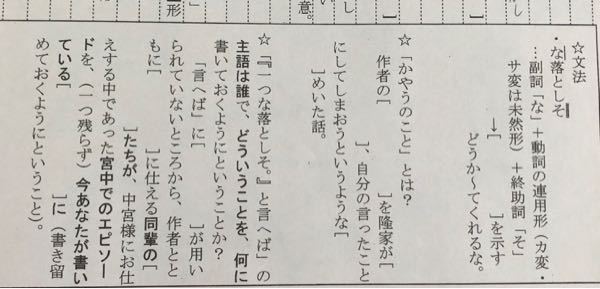 ☆文法
・な落としそ
…副詞「な」＋動詞の連用形（カ変・
サ変は未然形）＋終助詞「そ」
→［　　　　］を示す
どうか～てくれるな。
☆「かやうのこと」とは？
作者の［　　　　］を隆家が［
］、自分の言ったこと
にしてしまおうというような［
］めいた話。
☆「『一つな落としそ。』と言へば」の
主語は誰で、どういうことを、何に
書いておくようにということか？
「言へば」に［　　　　］が用い
られていないところから、作者とと
もに［　　　　］に仕える同輩の［
］たちが、中宮様にお仕
えする中であった宮中でのエピソー
ドを、（一つ残らず）今あなたが書い
ている［　　　　］に（書き留
めておくようにということ）。
意。
］
し
］
形］